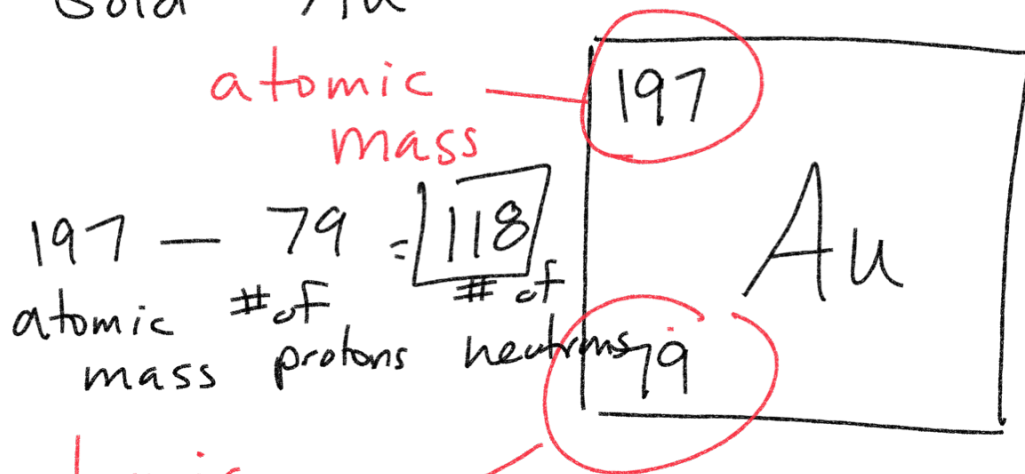 Gold Au
atomic
mass
197
Au
79
197 - 79 = 118
atomic # of # of
mass protons neutrons